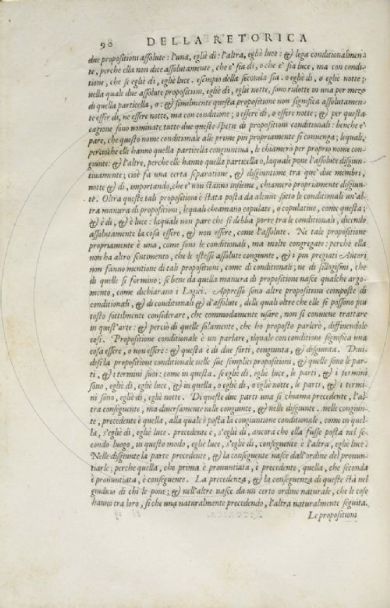 98 DELLA RETORICA
due propositioni assolute: l'una, egliè dì: l'altra, egliè luce: & lega conditionalmen=
te, perche ella non dice assolutamente, che e' sia dì, o che e' sia luce, ma con conditio
ne, che se egliè dì, egliè luce. esempio della seconda sia. o egliè dì, o egliè notte:
nella quale due assolute propositioni, egliè dì, egliè notte, sono ridotte in una per mezo
di quella particella, o: & similmente questa propositione non significa assolutamen
te esser dì, ne essere notte, ma con conditione, o essere dì, o essere notte: & per questa
cagione sono nominate tutte due queste spetie di propositioni conditionali: benche e'
pare, che questo nome conditionale alle prime più propriamente si convenga; lequali,
percioche elle hanno quella particella congiuntiva, le chiamerò per proprio nome con
giunte: & l'altre, perche elle hanno quella particella o, laquale pone l'assolute disgiun
tivamente; cioè fa una certa separatione, & disgiuntione tra que' due membri,
notte & dì, importando, che e' non stanno insieme, chiamerò propriamente disgiun=
te. Oltra queste tali propositioni è stata posta da alcuni sotto le conditionali un'al=
tra maniera di propositioni, lequali chiamano copulate, o copulative, come questa;
& è dì, & è luce: lequali non pare che si debba porre tra le conditionali, dicendo
assolutamente la cosa essere, & non essere, come l'assolute. Ne tale propositione
propriamente è una, come sono le conditionali, ma molte congregate: perche ella
non ha altro sentimento, che le istesse assolute congiunte, & i più pregiati Autori
non fanno mentione di tali propositioni, come di conditionali, ne di sillogismi, che
di quelle si formino; si bene da quella maniera di propositione nasce qualche argo=
mento, come dichiarano i Logici. Appresso sono altre propositioni composte di
conditionali, & di conditionali & d'assolute, delle quali oltre che elle si possono più
tosto sottilmente considerare, che commodamente usare, non si conviene trattare
in quest'arte: & perciò di quelle solamente, che ho proposto parlerò, diffinendole
così. Propositione conditionale è un parlare, ilquale con conditione significa una
cosa essere, o non essere: & questa è di due sorti, congiunta, & disgiunta. Divi
desi la propositione conditionale nelle sue semplici propositioni, & quelle sono le par=
ti, & i termini suoi: come in questa, se egliè dì, egliè luce, le parti, & i termini
sono, egliè dì, egliè luce, & in quella, o egliè dì, o egliè notte, le parti, & i termi=
ni sono, egliè dì, egliè notte. Di queste due parti una si chiama precedente, l'al=
tra conseguente, ma diversamente nelle congiunte, & nelle disgiunte. nelle congiun=
te, precedente è quella, alla quale è posta la congiuntione conditionale, come in quel
la, s'egliè dì, egliè luce. precedente è, s'egliè dì, ancora che ella fusse posta nel se=
condo luogo, in questo modo, egliè luce, s'egliè dì, conseguente è l'altra, egliè luce.
Nelle disgiunte la parte precedente, & la conseguente nasce dall'ordine del pronun=
tiarle: perche quella, che prima è pronuntiata, è precedente, quella, che seconda
è pronuntiata, è conseguente. La precedenza, & la conseguenza di queste stà nel
giudicio di chi le pone; & nell'altre nasce da un certo ordine naturale, che le cose
hanno tra loro, si che una naturalmente precedendo, l'altra naturalmente seguita.
Le propositioni